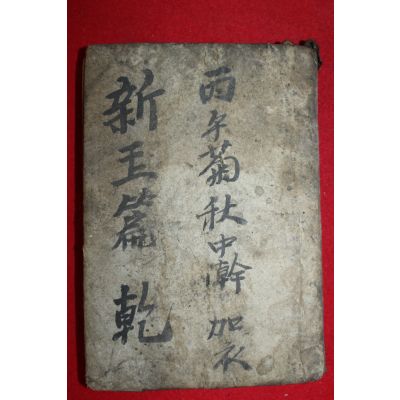 丙午菊秋中澣 加衣
新玉篇 乾